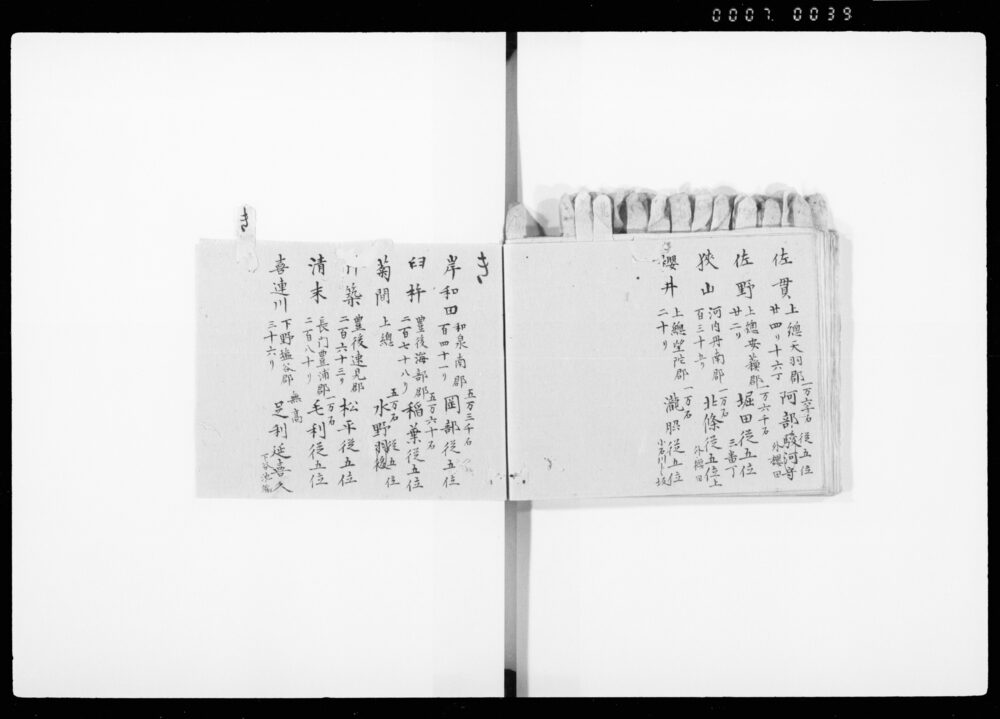 0007 0039
佐貫 上總天羽郡 廿四り十六丁 従五位 阿部駿河守
佐野 上總安蘓郡 廿二り 一万六千石 堀田従五位 三番丁
狭山 河内丹南郡 一万石 北條従五位上 外櫻田
櫻井 上總望陀郡 二十り 一万石 瀧脇従五位
き
岸和田 和泉南郡 百四十一り 五万三千石 岡部従五位
臼杵 豊後海部郡 二百七十八り 五万六十石 稲葉従五位
菊間 上總 五万石 水野 従五位
築 豊後速見郡 二百六十三り 松平従五位
清末 長門豊浦郡 二百八十り 一万石 毛利従五位
喜連川 下野塩谷郡 三十六り 無高 足利延喜久
き